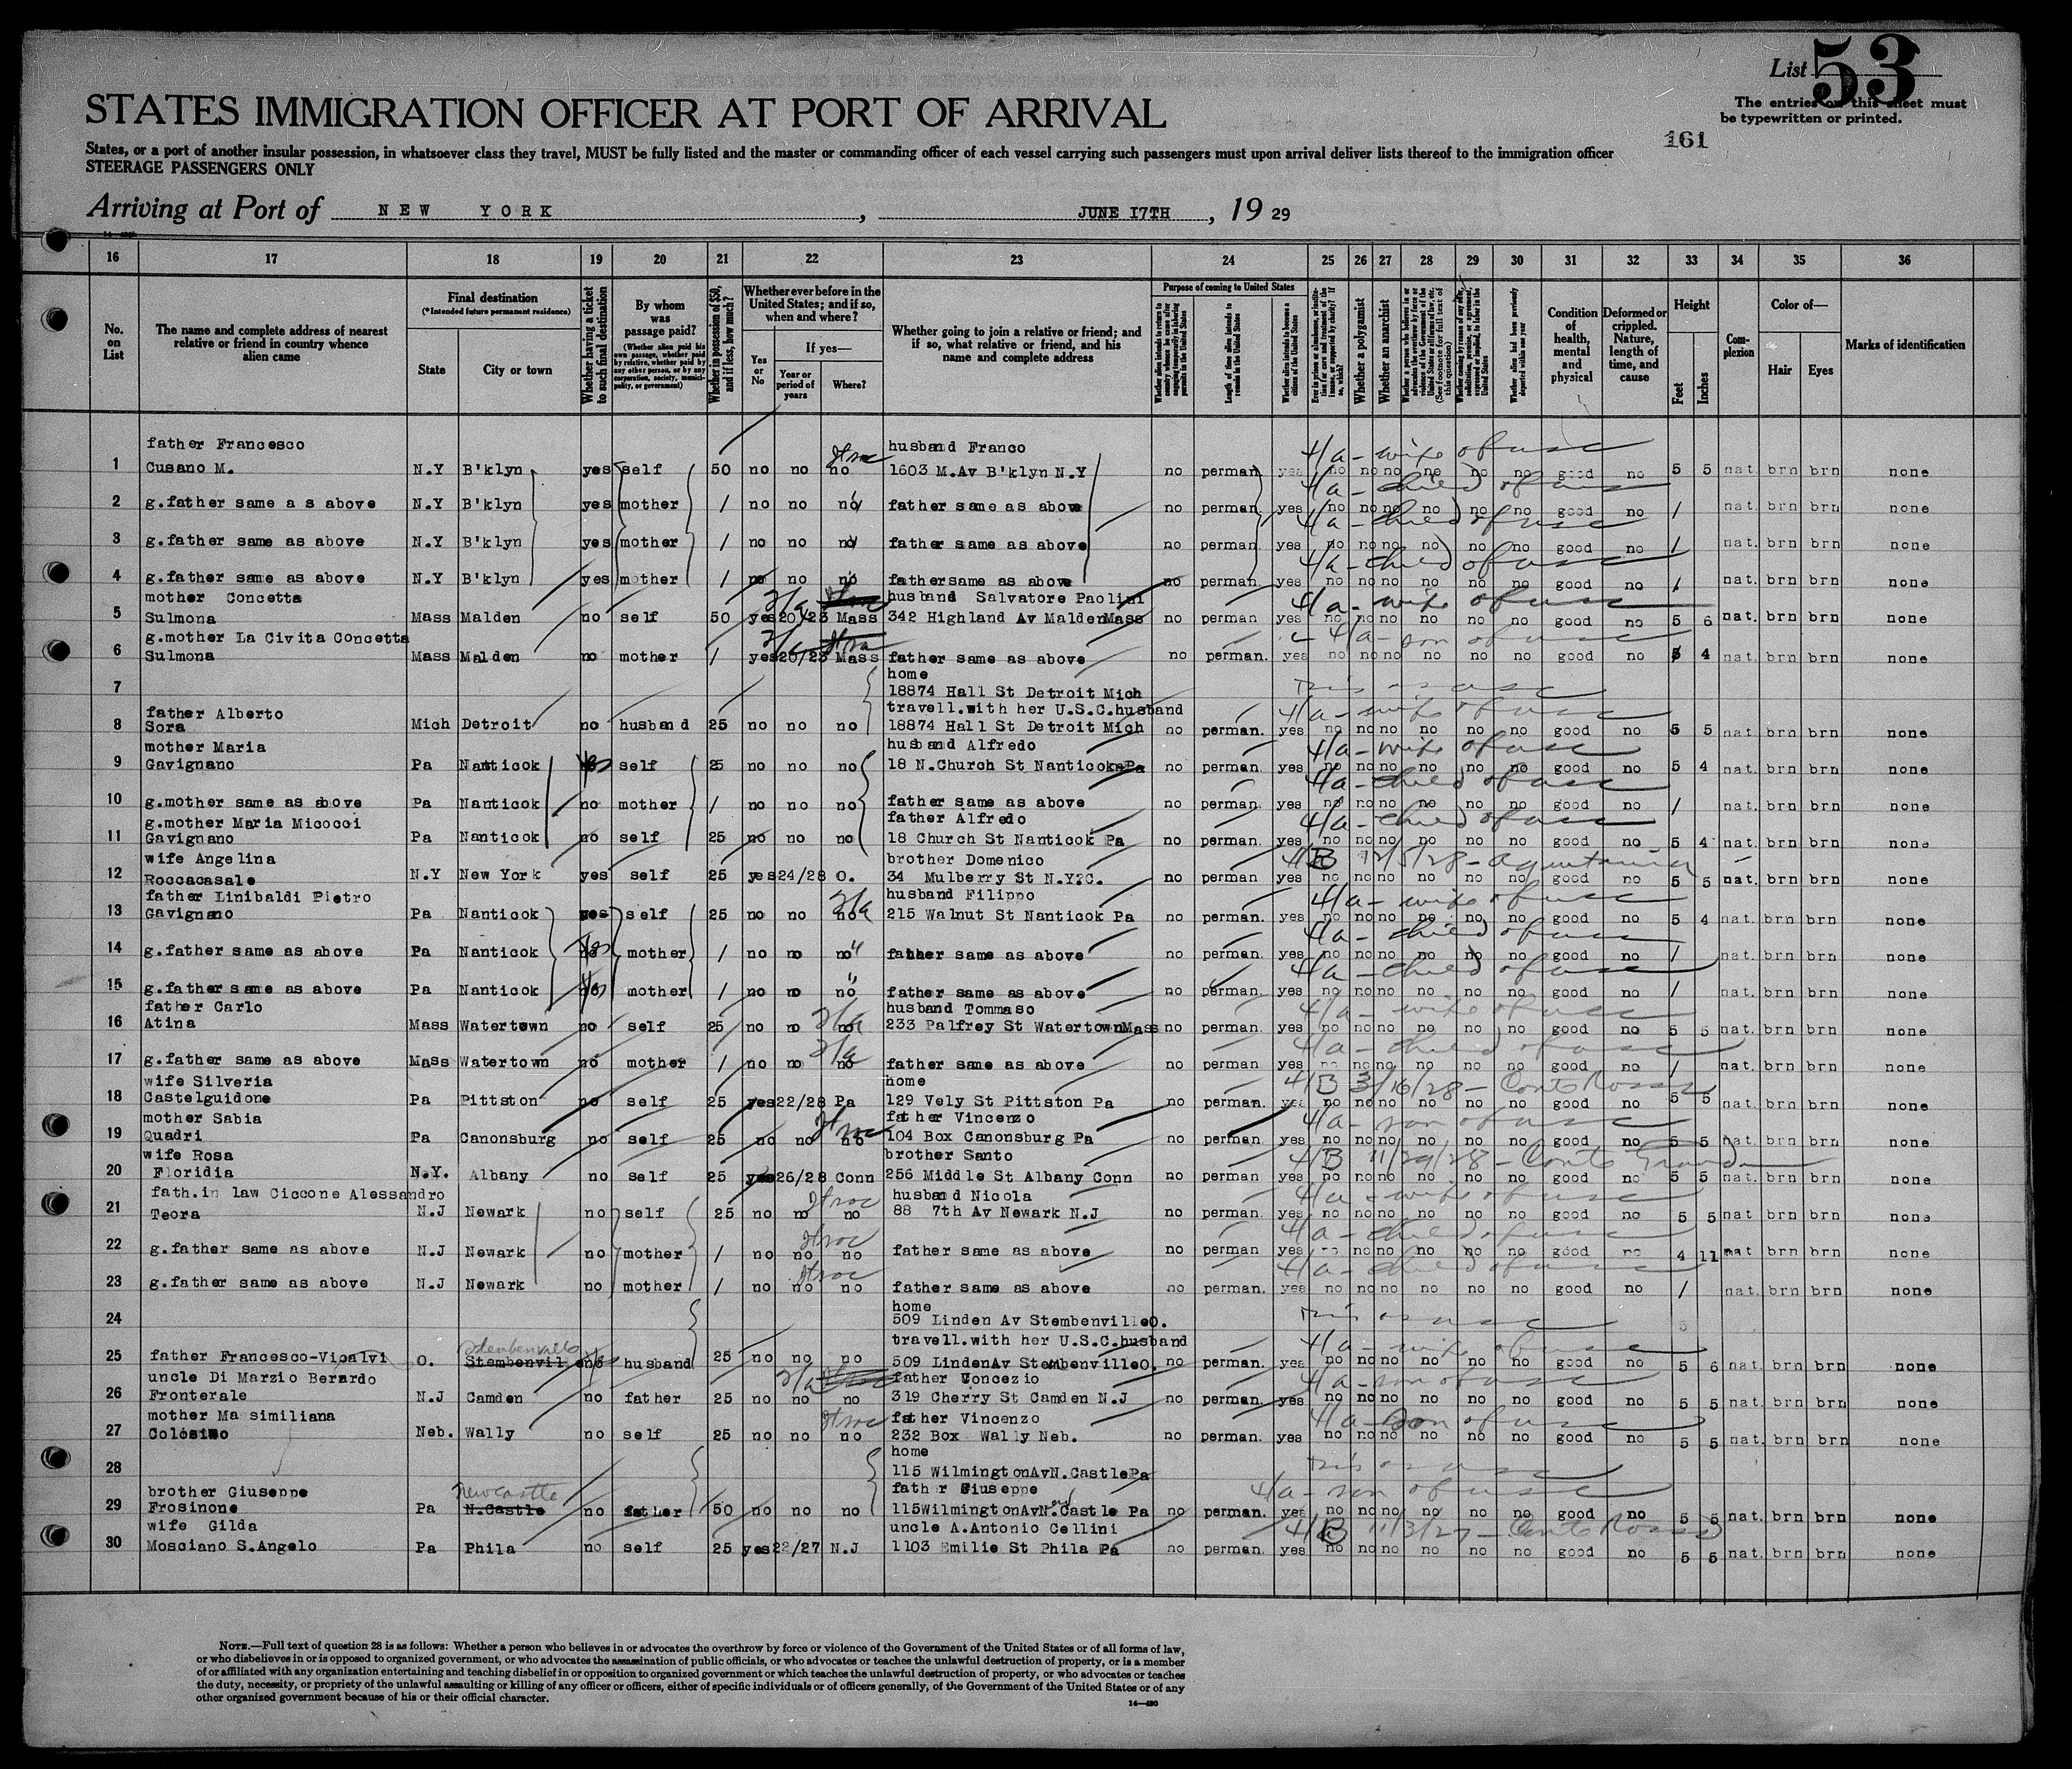 List 53
The entries on this sheet must
be typewritten or printed.
161
STATES IMMIGRATION OFFICER AT PORT OF ARRIVAL
States, or a port of another insular possession, in whatsoever class they travel, MUST be fully listed and the master or commanding officer of each vessel carrying such passengers must upon arrival deliver lists thereof to the immigration officer
STEERAGE PASSENGERS ONLY
Arriving at Port of NEW YORK , JUNE I7TH , 19 29
16 17 18 19 20 21 22 23 24 25 26 27 28 29 30 31 32 33 34 35 36
No. on List
The name and complete address of nearest relative or friend in country whence alien came
Final destination
(*Intended future permanent residence)
State
City or town
Whether having a ticket to such final destination
By whom was passage paid?
(Whether alien paid his own passage, whether paid by relative, whether paid by any other person, or by any corporation, society, municipality, or government)
Whether in possession of $50, and if less, how much?
Whether ever before in the United States; and if so, when and where?
Yes or No
If yes—
Year or period of years
Where?
Whether going to join a relative or friend; and if so, what relative or friend, and his name and complete address
Purpose of coming to United States
Whether alien intends to return to country whence he came after engaging temporarily in laboring pursuits in the United States
Length of time alien intends to remain in the United States
Whether alien intends to become a citizen of the United States
Whether a polygamist
Whether an anarchist
Whether alien had been previously deported within one year
Condition of health, mental and physical
Deformed or crippled. Nature, length of time, and cause
Height
Feet
Inches
Complexion
Color of—
Hair
Eyes
Marks of identification
father Francesco husband Franco 4/a - wife of usc
1 Cusano M. N.Y B'klyn yes self 50 no no no 1603 M.Av B'klyn N.Y no perman yes no no no no no no good no 5 5 nat. brn brn none
4/a - child of usc
2 g.father same a s above N.Y B'klyn yes mother / no no no father same as above no perman yes no no no no no no good no / nat. brn brn none
4/a - child of usc
3 g.father same as above N.Y B'klyn yes mother / no no no father same as above no perman. yes no no no no no no good no / nat. brn brn none
4/a - child of usc
4 g.father same as above N.Y B'klyn yes mother / no no no fathersame as above no perman. yes no no no no no no good no / nat. brn brn none
mother Concetta 2/a husband Salvatore Paolini 4/a - wife of usc
5 Sulmona Mass Malden no self 50 yes 20/23 Mass 342 Highland Av MaldenMass no perman yes no no no no no no good no 5 6 nat. brn brn none
g.mother La Civita Concetta 2/a 4/a - son of usc
6 Sulmona Mass Malden no mother / yes 20/23 Mass father same as above no perman. yes no no no no no no good no 5 4 nat. brn brn none
home
7 18874 Hall St Detroit Mich This is a usc
father Alberto travell.with her U.S.C.husband 4/a - wife of usc
8 Sora Mich Detroit no husband 25 no no no 18874 Hall St Detroit Mich no perman. yes no no no no no no good no 5 5 nat. brn brn none
mother Maria husband Alfredo 4/a - wife of usc
9 Gavignano Pa Nantticok yes self 25 no no no 18 N.Church St NanticokePa no perman. yes no no no no no no good no 5 4 nat. brn brn none
4/a - child of usc
10 g.mother same as above Pa Nanticok no mother / no no no father same as above no perman. yes no no no no no no good no / nat. brn brn none
g.mother Maria Micocci father Alfredo 4/a - child of usc
11 Gavignano Pa Nanticok no self 25 no no no 18 Church St Nanticok Pa no perman. yes no no no no no no good no 5 4 nat. brn brn none
wife Angelina brother Domenico 4/B 12/5/28 - Aquitania
12 Roccacasale N.Y New York yes self 25 yes 24/28 O. 34 Mulberry St N.Y?C. no perman yes no no no no no no good no 5 5 nat. brn brn none
father Linibaldi Pietro 2/a husband Filippo 4/a - wife of usc
13 Gavignano Pa Nanticok yes self 25 no no no 215 Walnut St Nanticok Pa no perman. yes no no no no no no good no 5 4 nat. brn brn none
4/a - child of usc
14 g.father same as above Pa Nanticok yes mother / no no no " father same as above no perman. yes no no no no no no good no / nat. brn brn none
4/a - child of usc
15 g.father same as above Pa Nanticok yes mother / no no no " father same as above no perman. yes no no no no no no good no / nat. brn brn none
father Carlo 2/a husband Tommaso 4/a - wife of usc
16 Atina Mass Watertown no self 25 no no no 233 Palfrey St WatertownMass no perman. yes no no no no no no good no 5 5 nat. brn brn none
2/a 4/a - child of usc
17 g.father same as above Mass Watertown no mother / no no no father same as above no perman yes no no no no no no good no / nat. brn brn none
wife Silveria home 4/B 3/16/28 - Conte Rosso
18 Castelguidone Pa Pittston no self 25 yes 22/28 Pa 129 Vely St Pittston Pa no perman. yes no no no no no no good no 5 5 nat. brn brn none
mother Sabia father Vincenzo 4/a - son of usc
19 Quadri Pa Canonsburg no self 25 no no no 104 Box Canonsburg Pa no perman. yes no no no no no no good no 5 5 nat. brn brn none
wife Rosa brother Santo 4/B 11/29/28 - Conte Grande
20 Floridia N.Y. Albany no self 25 yes 26/28 Conn 256 Middle St Albany Conn no perman. yes no no no no no no good no 5 5 nat. brn brn none
fath.in law Ciccone Alessandro husband Nicola 4/a - wife of usc
21 Teora N.J Newark no self 25 no no no 88 7th Av Newark N.J no perman. yes no no no no no no good no 5 5 nat brn brn none
4/a - child of usc
22 g.father same as above N.J Newark no mother / no no no father same as above no perman yes no no no no no no good no 4 11 nat brn brn none
4/a - child of usc
23 g.father same as above N.J Newark no mother / no no no father same as above no perman. yes no no no no no no good no / nat. brn brn none
home
24 509 Linden Av StembenvilleO. This is a usc
Steubenville travell.with her U.S.C.husband 4/a - wife of usc
25 father Francesco-Vicalvi O. Stembenvil yes husband 25 no no no 509 LindenAv StembenvilleO. no perman. yes no no no no no no good no 5 6 nat. brn brn none
uncle Di Marzio Berardo 2/a father Concezio 4/a - son of usc
26 Fronterale N.J Camden no father 25 no no no 319 Cherry St Camden N.J no perman. yes no no no no no no good no 5 5 nat. brn brn none
mother Ma similiana father Vincenzo 4/a - son of usc
27 Colosimo Neb. Wally no self 25 no no no 232 Box Wally Neb. no perman. yes no no no no no no good no 5 5 nat. brn brn none
home
28 115 WilmingtonAvN.CastlePa This is a usc
brother Giuseppe Newcastle father Giuseppe 4/a - son of usc
29 Frosinone Pa N.Castle no father 50 no no no 115WilmingtonAvN.Castle Pa no perman. yes no no no no no no good no 5 5 nat. brn brn none
wife Gilda uncle A.Antonio Cellini 4/B 11/3/27 - Conte Rosso
30 Mosciano S.Angelo Pa Phila no self 25 yes 22/27 N.J 1103 Emilie St Phila Pa no perman. yes no no no no no no good no 5 5 nat. brn brn none
NOTE.—Full text of question 28 is as follows: Whether a person who believes in or advocates the overthrow by force or violence of the Government of the United States or of all forms of law,
or who disbelieves in or is opposed to organized government, or who advocates the assassination of public officials, or who advocates or teaches the unlawful destruction of property, or is a member
of or affiliated with any organization entertaining and teaching disbelief in or opposition to organized government or which teaches the unlawful destruction of property, or who advocates or teaches
the duty, necessity, or propriety of the unlawful assaulting or killing of any officer or officers, either of specific individuals or of officers generally, of the Government of the United States or of any
other organized government because of his or their official character.
14—430